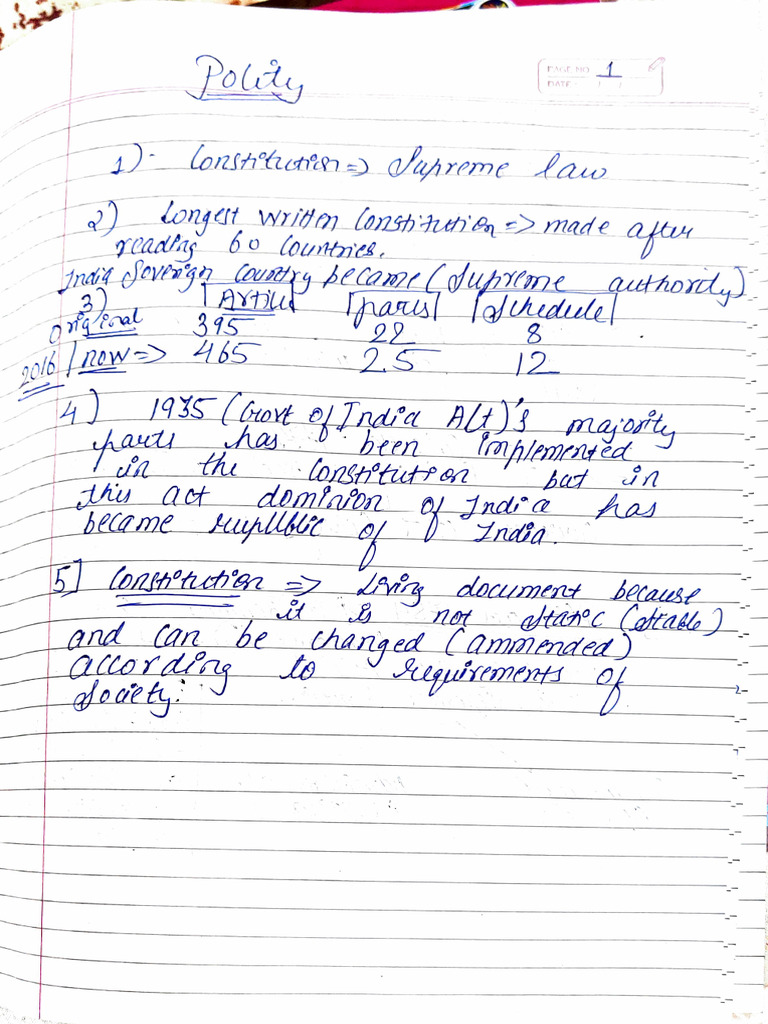 Polity
PAGE NO 1
DATE
1)- Constitution => Supreme law
2) Longest written Constitution => made after
reading 60 Countries.
India Soverign country became (Supreme authority)
3) Article parts Schedule
Original 395 22 8
2016 / now => 465 25 12
4) 1935 (Govt of India Act)'s majority
parts has been implemented
in the constitution but in
this act dominion of India has
became of India.
5] Constitution => Living document because
it is not static (stable)
and can be changed (ammended)
according to requirements of
Society.